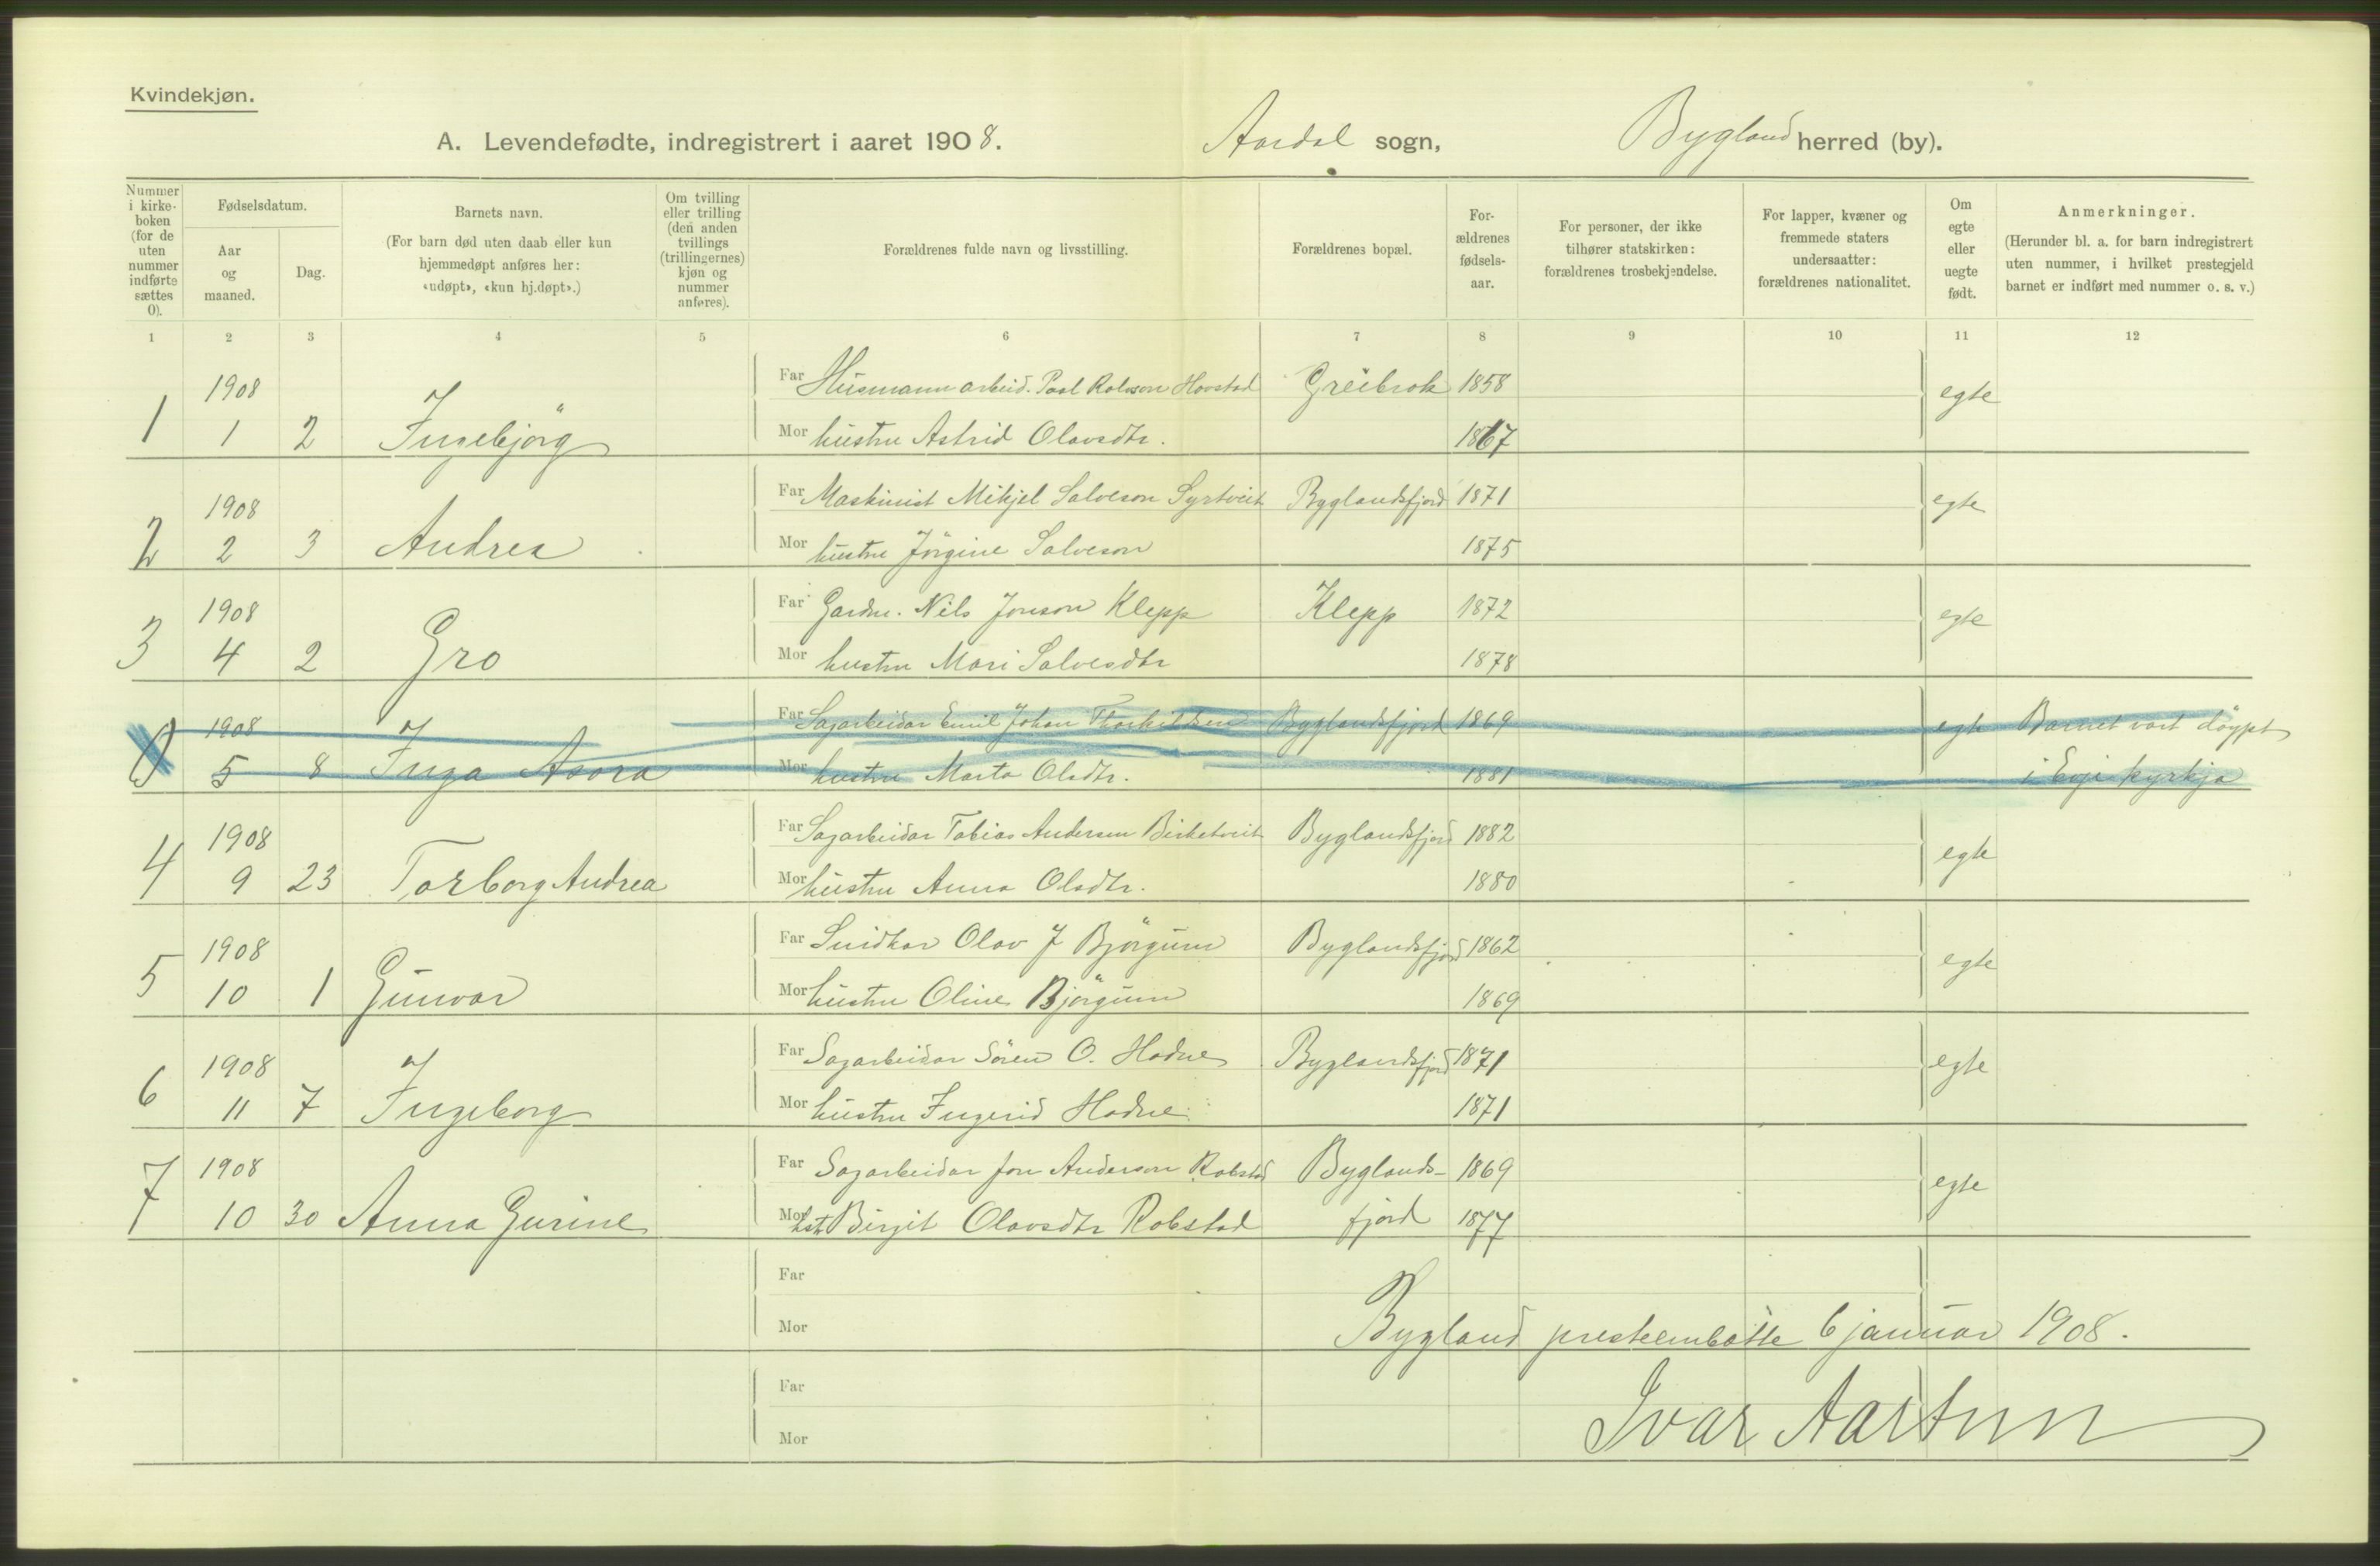 Kvindekjøn.
A. Levendefødte, indregistrert i aaret 1908. Aardal sogn, Bygland herred (by).
Nummer i kirkeboken (for de uten nummer indførte sættes 0).
Fødselsdatum.
Aar og maaned.
Dag.
Barnets navn.
(For barn død uten daab eller kun hjemmedøpt anføres her: «udøpt», «kun hj.døpt».)
Om tvilling eller trilling (den anden tvillings (trillingernes) kjøn og nummer anføres).
Forældrenes fulde navn og livsstilling.
Forældrenes bopæl.
Forældrenes fødselsaar.
For personer, der ikke tilhører statskirken: forældrenes trosbekjendelse.
For lapper, kvæner og fremmede staters undersaatter: forældrenes nationalitet.
Om egte eller uegte født.
Anmerkninger.
(Herunder bl. a. for barn indregistrert uten nummer, i hvilket prestegjeld barnet er indført med nummer o. s. v.)
1 2 3 4 5 6 7 8 9 10 11 12
1908 Far Husmann arbeid. Paal Rolvson Hovstad Greibrok 1858 egte
1 1 2 Ingebjörg Mor hustru Astrid Olavsdtr. 1867
1908 Far Maskinist Mikjel Salveson Syrtveit Byglandsfjord 1871 egte
2 2 3 Andrea Mor hustru Jörgine Salveson 1875
1908 Far Gardm. Nils Jonson Klepp Klepp 1872 egte
3 4 2 Gro Mor hustru Mari Salvesdtr 1878
1908 Far Sagarbeidar Emil Johan Thorkildsen Byglandsfjord 1869 egte Barnet vart döypt
0 5 8 Inga Asora Mor hustru Marta Olsdtr. 1881 i Evje kyrkja
1908 Far Sagarbeidar Tobias Andersen Birketveit Byglandsfjord 1882 egte
4 9 23 Torborg Andrea Mor hustru Anna Olsdtr. 1880
1908 Far Snidkar Olav J Björgum Byglandsfjord 1862 egte
5 10 1 Gunvor Mor hustru Oline Björgum 1869
1908 Far Sagarbeidar Sören O. Hodne Byglandsfjord 1871 egte
6 11 7 Ingeborg Mor hustru Ingerid Hodne 1871
1908 Far Sagarbeidar Jon Anderson Robstad Byglands- 1869 egte
7 10 30 Anna Gurine Mor hstr Birgit Olavsdtr Robstad fjord 1877
Far
Mor Bygland prestembötte 6 januar 1908.
Far
Mor Ivar Aartun